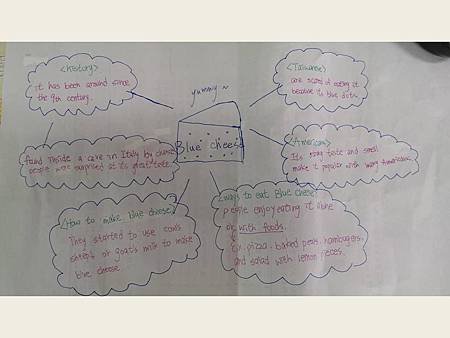 <History>
it has been around since
the 9th century.
found inside a cave in Italy by chance
people were surprised at its great taste
yummy ~
Blue cheese
<Taiwanese>
are scared of eating it
because its blue dots.
<American>
Its strong taste and smell
make it popular with many Americans.
<How to make blue cheese>
They started to use cow's
sheep's or goat's milk to make
blue cheese
<ways to eat Blue cheese>
people enjoy eating it alone
or with foods.
Ex. pizza, baked pears, hambugers,
and salad with lemon pieces.